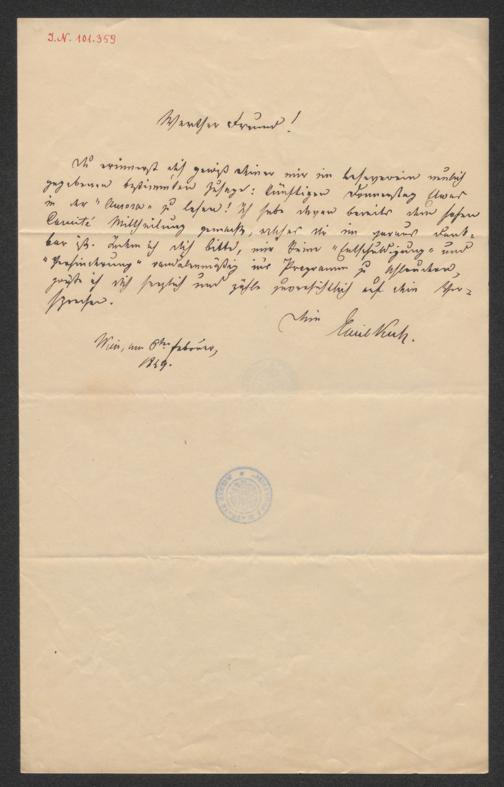 I.N. 101.359
Werther Freund!
Du erinnerst dich gewiß Deiner mir im Leseverein neulich
gegebenen bestimmten Zusage: künftigen Donnerstag Etwas
in der "Aurora" zu lesen! Ich habe davon bereits dem hohen
Comité Mittheilung gemacht, welches dir im voraus dank-
bar ist. Indem ich dich bitte, mir keine "Entschuldigung" und
"Verhinderung" ins Programm zu schleudern,
grüße ich dich herzlich und zähle zuversichtlich auf dein Ver-
sprechen.
Dein
Emil Kuh.
Wien, am 6ten Februar,
1849.